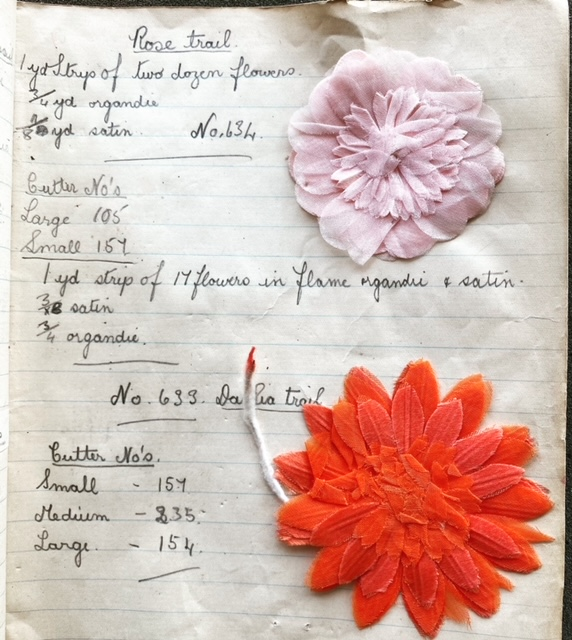 Rose trail.
1 yd Strip of two dozen flowers.
3/4 yd organdie
yd satin. No. 634
Cutter No's
Large 105
Small 157
1 yd strip of 17 flowers in flame organdie & satin.
satin
3/4 organdie.
No. 633. Dahlia trail
Cutter No's.
Small - 157
Medium - 235.
Large. - 154.